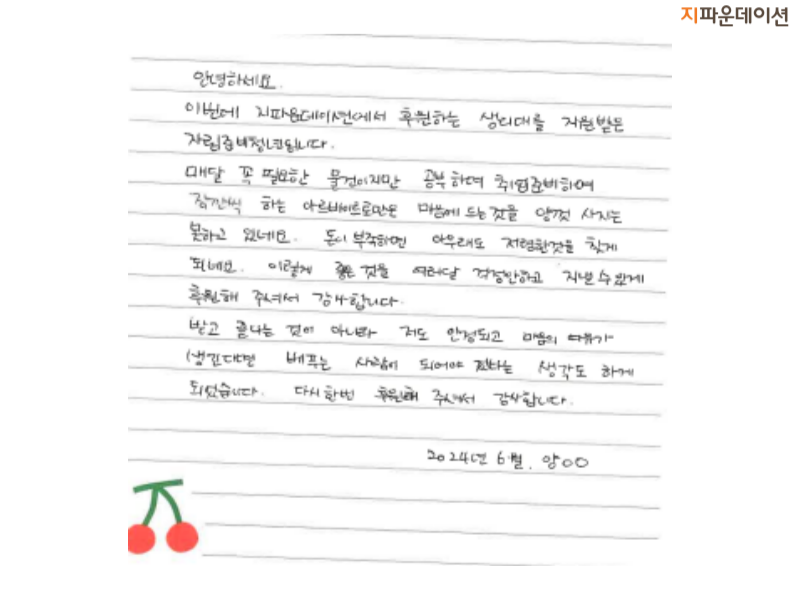 지파운데이션
안녕하세요.
이번에 지파운데이션에서 후원하는 생리대를 지원받은
자립준비청년입니다.
매달 꼭 필요한 물건이지만 공부하며 취업준비하며
잠깐씩 하는 아르바이트로만은 마음에 드는것을 양껏 사지는
못하고 있네요. 돈이 부족하면 아무래도 저렴한것을 찾게
되네요. 이렇게 좋은 것을 여러달 걱정안하고 지낼수있게
후원해 주셔서 감사합니다.
받고 끝나는 것이 아니라 저도 안정되고 마음의 여유가
생긴다면 베푸는 사람이 되어야 겠다는 생각도 하게
되었습니다. 다시한번 후원해 주셔서 감사합니다.
2024년 6월. 양○○